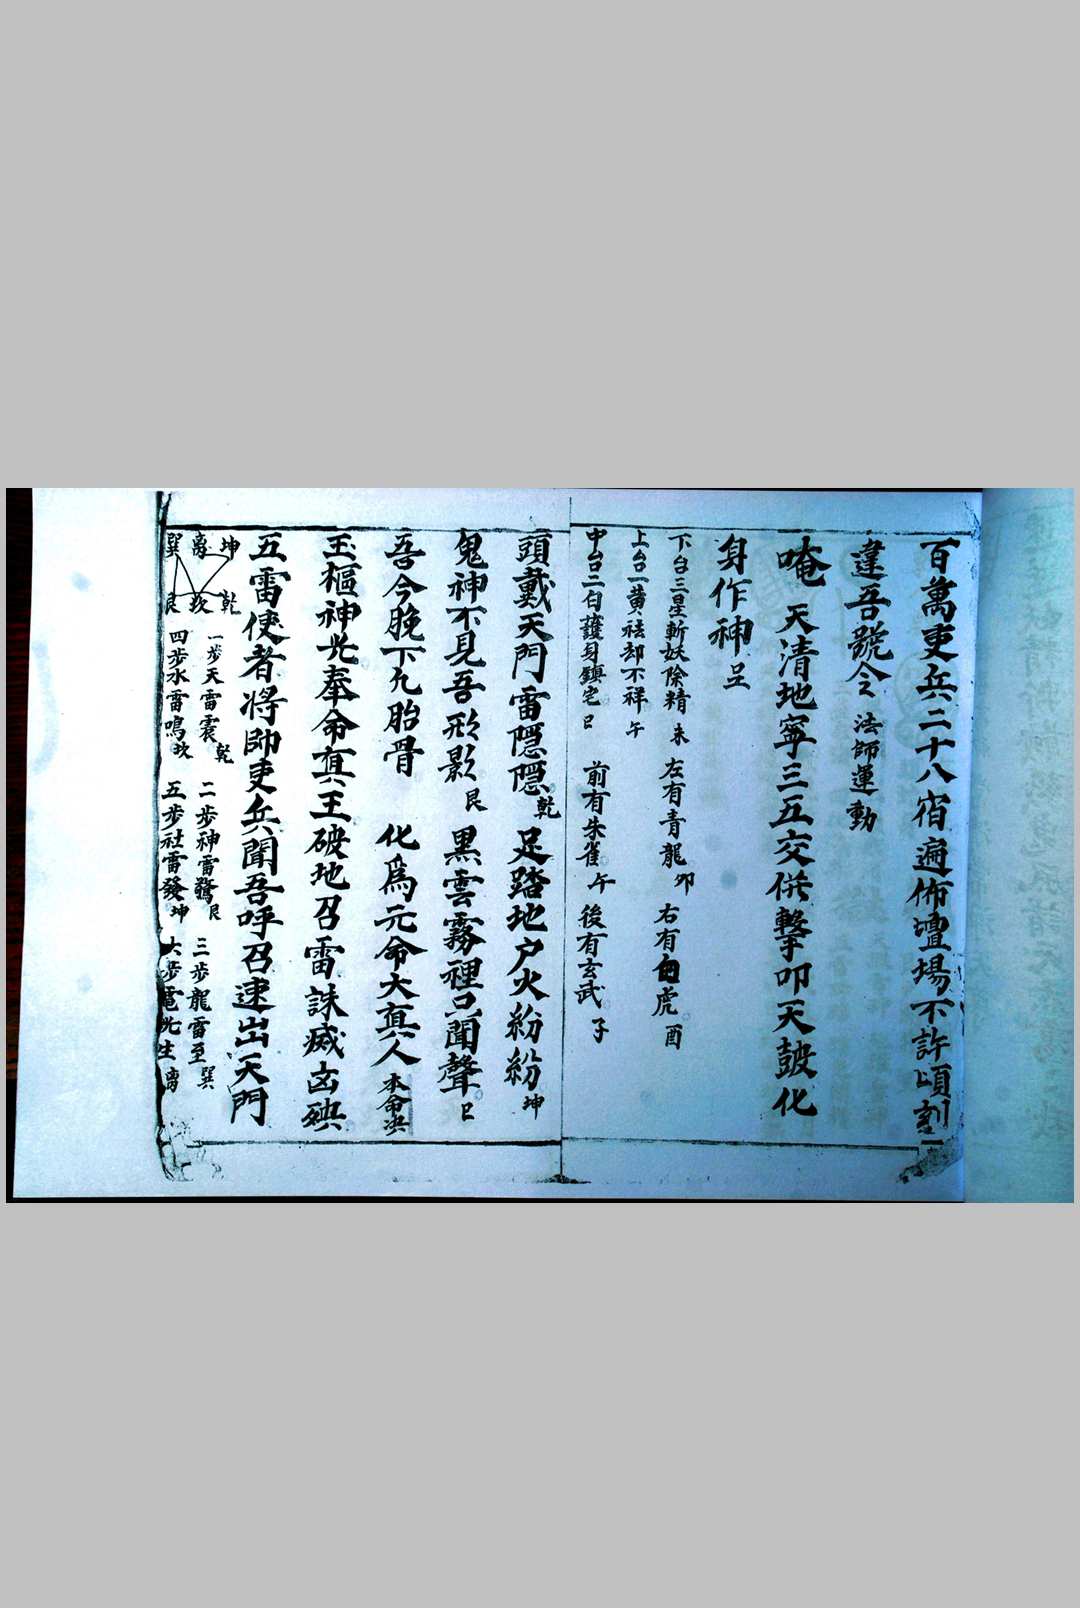 百萬吏兵二十八宿遍佈壇場不許頃刻
違吾號令 法師運動
唵 天清地寧三五交併擊叩天皷化
身作神
下台三星斬妖除精 未 左有青龍 卯 右有白虎 酉
上台一黄祛却不祥 午
中台二白護身鎮宅 巳 前有朱雀 午 後有玄武 子
頭戴天門雷隱隱 乾 足踏地户火紛紛 坤
鬼神不見吾形影 艮 黑雲霧裡只聞聲 巳
吾今脫下凢胎骨 化爲元命大真人 本命
玉樞神光奉命真王破地召雷誅滅凶殃
五雷使者將帥吏兵聞吾呼召速出天門
坤 離 巽
乾 坎 艮
一步天雷震 乾 二步神雷驚 艮 三步龍雷至 巽
四步水雷鳴 坎 五步社雷發 坤 六步電光生 离